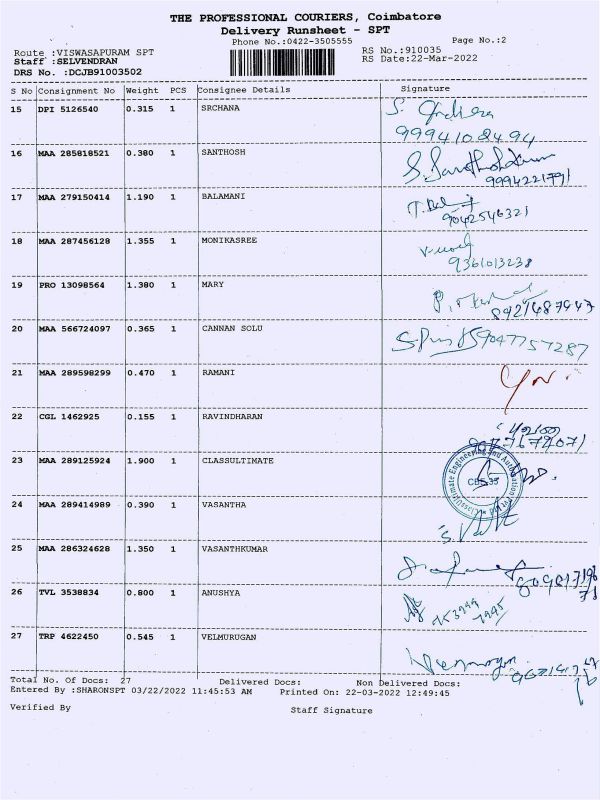 THE PROFESSIONAL COURIERS, Coimbatore
Delivery Runsheet - SPT
Phone No.:0422-3505555 Page No.:2
Route :VISWASAPURAM SPT RS No.:910035
Staff :SELVENDRAN RS Date:22-Mar-2022
DRS No. :DCJB91003502
S No Consignment No Weight PCS Consignee Details Signature
15 DPI 5126540 0.315 1 SRCHANA
9994108494
16 MAA 285818521 0.380 1 SANTHOSH
9994221791
17 MAA 279150414 1.190 1 BALAMANI
9042546321
18 MAA 287456128 1.355 1 MONIKASREE
9361013238
19 PRO 13098564 1.380 1 MARY
8921487943
20 MAA 566724097 0.365 1 CANNAN SOLU
9047757287
21 MAA 289598299 0.470 1 RAMANI
22 CGL 1462925 0.155 1 RAVINDHARAN
23 MAA 289125924 1.900 1 CLASSULTIMATE
24 MAA 289414989 0.390 1 VASANTHA
25 MAA 286324628 1.350 1 VASANTHKUMAR
26 TVL 3538834 0.800 1 ANUSHYA
27 TRP 4622450 0.545 1 VELMURUGAN
Total No. Of Docs: 27 Delivered Docs: Non Delivered Docs:
Entered By :SHARONSPT 03/22/2022 11:45:53 AM Printed On: 22-03-2022 12:49:45
Verified By Staff Signature